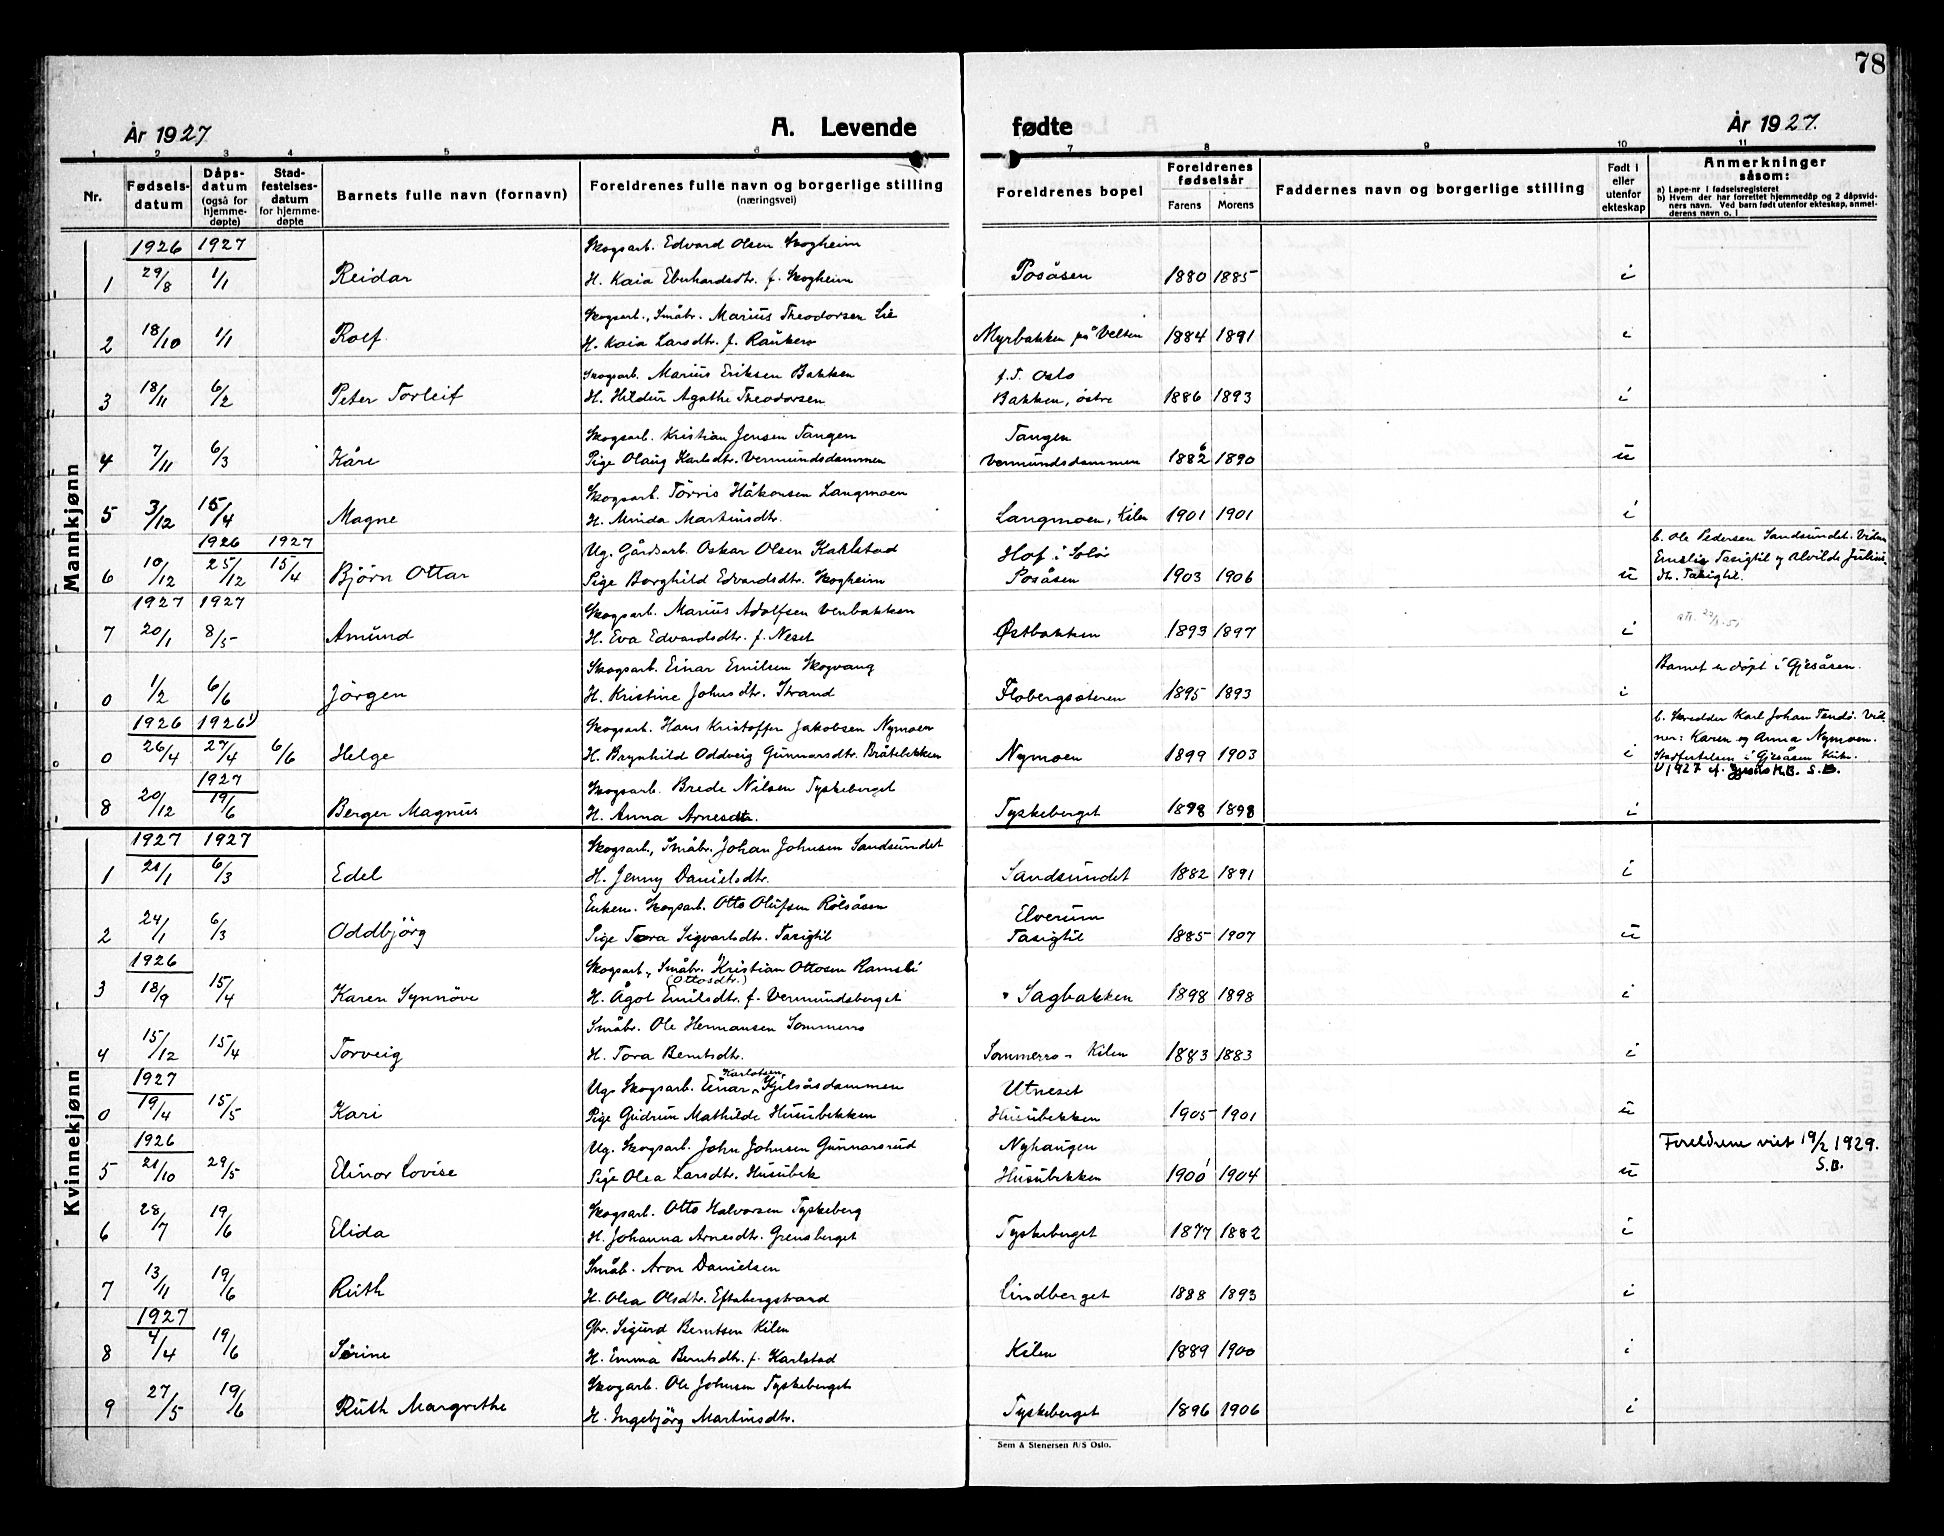 78
År 1927
A. Levende
fødte
År 1927.
1 2 3 4 5 6 7 8 9 10 11
Nr. Fødselsdatum Dåpsdatum (også for hjemmedøpte Stadfestelsesdatum for hjemmedøpte Barnets fulle navn (fornavn) Foreldrenes fulle navn og borgerlige stilling (næringsvei) Foreldrenes bopel Foreldrenes fødselsår Farens Morens Faddernes navn og borgerlige stilling Født i eller utenfor ekteskap Anmerkninger såsom: a) Løpe-nr i fødselsregisteret b) Hvem der har forrettet hjemmedåp og 2 dåpsvidners navn. Ved barn født utenfor ekteskap, anmelderens navn o. l
Mannkjønn
1926 1927 Skogsarb. Edvard Olsen Skogheim
1 29/8 1/1 Reidar H. Kaia Eberhardsdtr. f. Skogheim Posåsen 1880 1885 i
Skogsarb., Småbr. Marius Theodorsen Lie
2 18/10 1/1 Rolf H. Kaia Larsdtr. f. Raukero Myrbakken på Velten 1884 1891 i
Skogsarb. Marius Eriksen Bakken f.T. Oslo
3 18/11 6/2 Peter Torleif H. Hildur Agathe Theodorsen Bakken, østre 1886 1893 i
Skogsarb. Kristian Jensen Tangen Tangen
4 7/11 6/3 Kåre Pige Olaug Karlsdtr. Vermundsdammen Vermundsdammen 1882 6 1890 u
Skogsarb. Torris Håkonsen Langmoen
5 3/12 15/4 Magne H. Minda Martinsdtr. Langmoen, Kilen 1901 1901 i
1926 1927 Ug. Gårdsarb. Oskar Olsen Karlstad Hof i Solør b. Ole Pedersen Sandsundet. Vidner
6 10/12 25/12 15/4 Bjørn Ottar Pige Borghild Edvardsdtr. Skogheim Posåsen 1903 1906 u Emelie Tasigtil og Alvilde Julius-
dtr. Tasigtil.
1927 1927 Skogsarb. Marius Adolfsen Venbakken
7 20/1 8/5 Amund H. Eva Edvardsdtr. f. Neset Østbakken 1893 1897 i
Skogsarb. Einar Emilsen Skogvang Barnet er døpt i Gjesåsen.
0 1/2 6/6 Jörgen H. Kristine Johnsdtr. Strand Flobergseteren 1895 1893 i
1926 1926 1) Skogsarb. Hans Kristoffer Jakobsen Nymoen b. Skredder Karl Johan Tandö. Vid-
0 26/4 27/4 6/6 Helge H. Brynhild Oddveig Gunnarsdtr. Bråtebekken Nymoen 1899 1903 i ner: Karen og Anna Nymoen.
Stadfestelsen i Gjesåsen Kirke.
1) 1927 cf. Gjesås K.B. S.B.
1927 Skogsarb. Brede Nilsen Tyskeberget
8 20/12 19/6 Berger Magnus H. Anna Arnesdtr. Tyskeberget 1898 1898 i
Kvinnekjønn
1927 1927 Skogsarb., Småbr. Johan Johnsen Sandsundet
1 21/1 6/3 Edel H. Jenny Danielsdtr. Sandsundet 1882 1891 i
Enkem. Skogsarb. Otto Olufsen Rölsåsen Elverum
2 24/1 6/3 Oddbjörg Pige Tora Sigvartsdtr. Tasigtil Tasigtil 1885 1907 u
1926 Skogsarb., Småbr. Kristian Ottosen Ramsli
(Ottosdtr.)
3 18/9 15/4 Karen Synnöve H. Ågot Emilsdtr. f. Vermundsberget Sagbakken 1898 1898 i
Småbr. Ole Hermansen Sommerro
4 15/12 15/4 Torveig H. Tora Berntsdtr. Sommerro - Kilen 1883 1883 i
1927 Ug. Skogsarb. Einar Karlotsen Kjelsåsdammen Utneset
0 19/4 15/5 Kari Pige Gudrun Mathilde Husubekken Husubekken 1905 1901 u
1926 Ug. Skogsarb. John Johnsen Gunnarsrud Nyhaugen Foreldrene viet 19/2 1929.
5 21/10 29/5 Elinor Lovise Pige Olea Larsdtr. Husubek Husubekken 1900 1 1904 u S.B.
Skogsarb. Otto Halvorsen Tyskeberg
6 28/7 19/6 Elida H. Johanna Arnesdtr. Grensberget Tyskeberget 1877 1882 i
Småb. Aron Danielsen
7 13/11 19/6 Ruth H. Olea Olsdtr. Eftabergstrand Lindberget 1888 1893 i
1927 Gbr. Sigurd Berntsen Kilen
8 4/4 19/6 Sörine H. Emma Berntsdtr. f. Karlstad Kilen 1889 1900 i
Skogarb. Ole Johnsen Tyskeberget
9 27/5 19/6 Ruth Margrethe H. Ingebjörg Martinsdtr. Tyskeberget 1896 1906 i
Sem & Stenersen A/S Oslo.